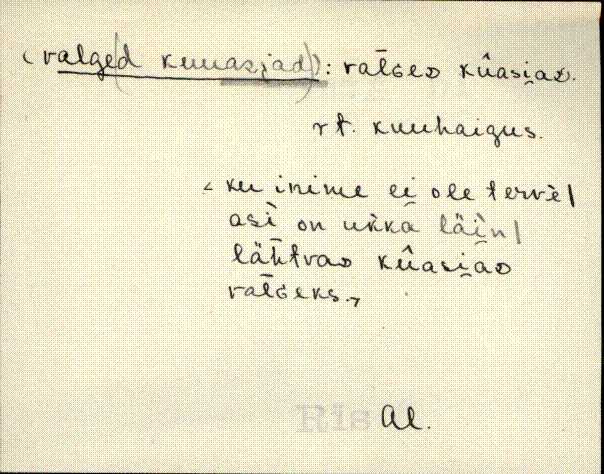 (valged (kuuasjad)): val̄ɢᴇᴅ kûasi̯aᴅ.
vt. kuuhaigus.
< ku inime ei ole tervè/
asì on ukkà läìn/
läh̄tvaᴅ kûasi̯aᴅ
val̄ɢeks.>
Ris
Al.